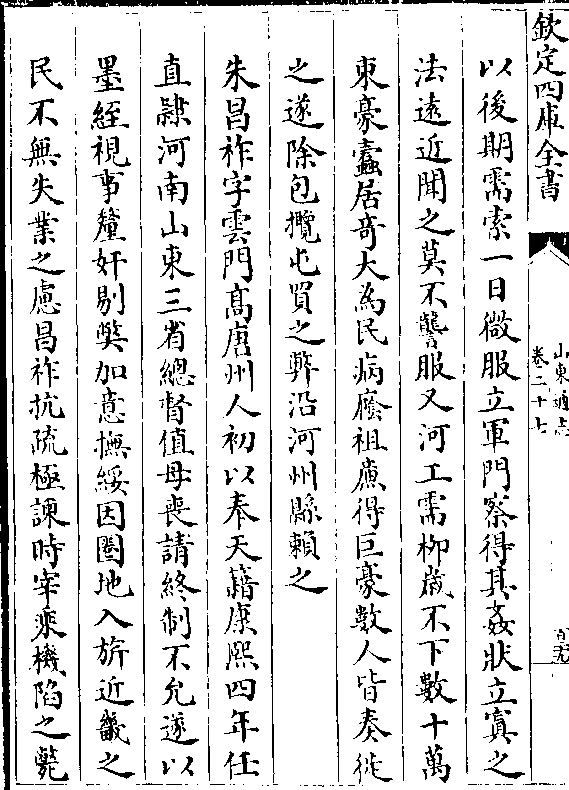 欽定四庫全書
山東通志
卷二十七
百九
以後期需索一日微服立軍門察得其姦狀立寘之
法遠近聞之莫不讋服又河工需柳歲不下數十萬
東豪蠹居奇大為民病廕祖廉得巨豪數人皆奏徙
之遂除包攬屯買之弊沿河州縣賴之
朱昌祚字雲門高唐州人初以奉天籍康熙四年任
直隷河南山東三省總督值母喪請終制不允遂以
墨絰視事釐奸剔弊加意撫綏因圈地入旂近畿之
民不無失業之慮昌祚抗疏極諫時宰乘機陷之斃